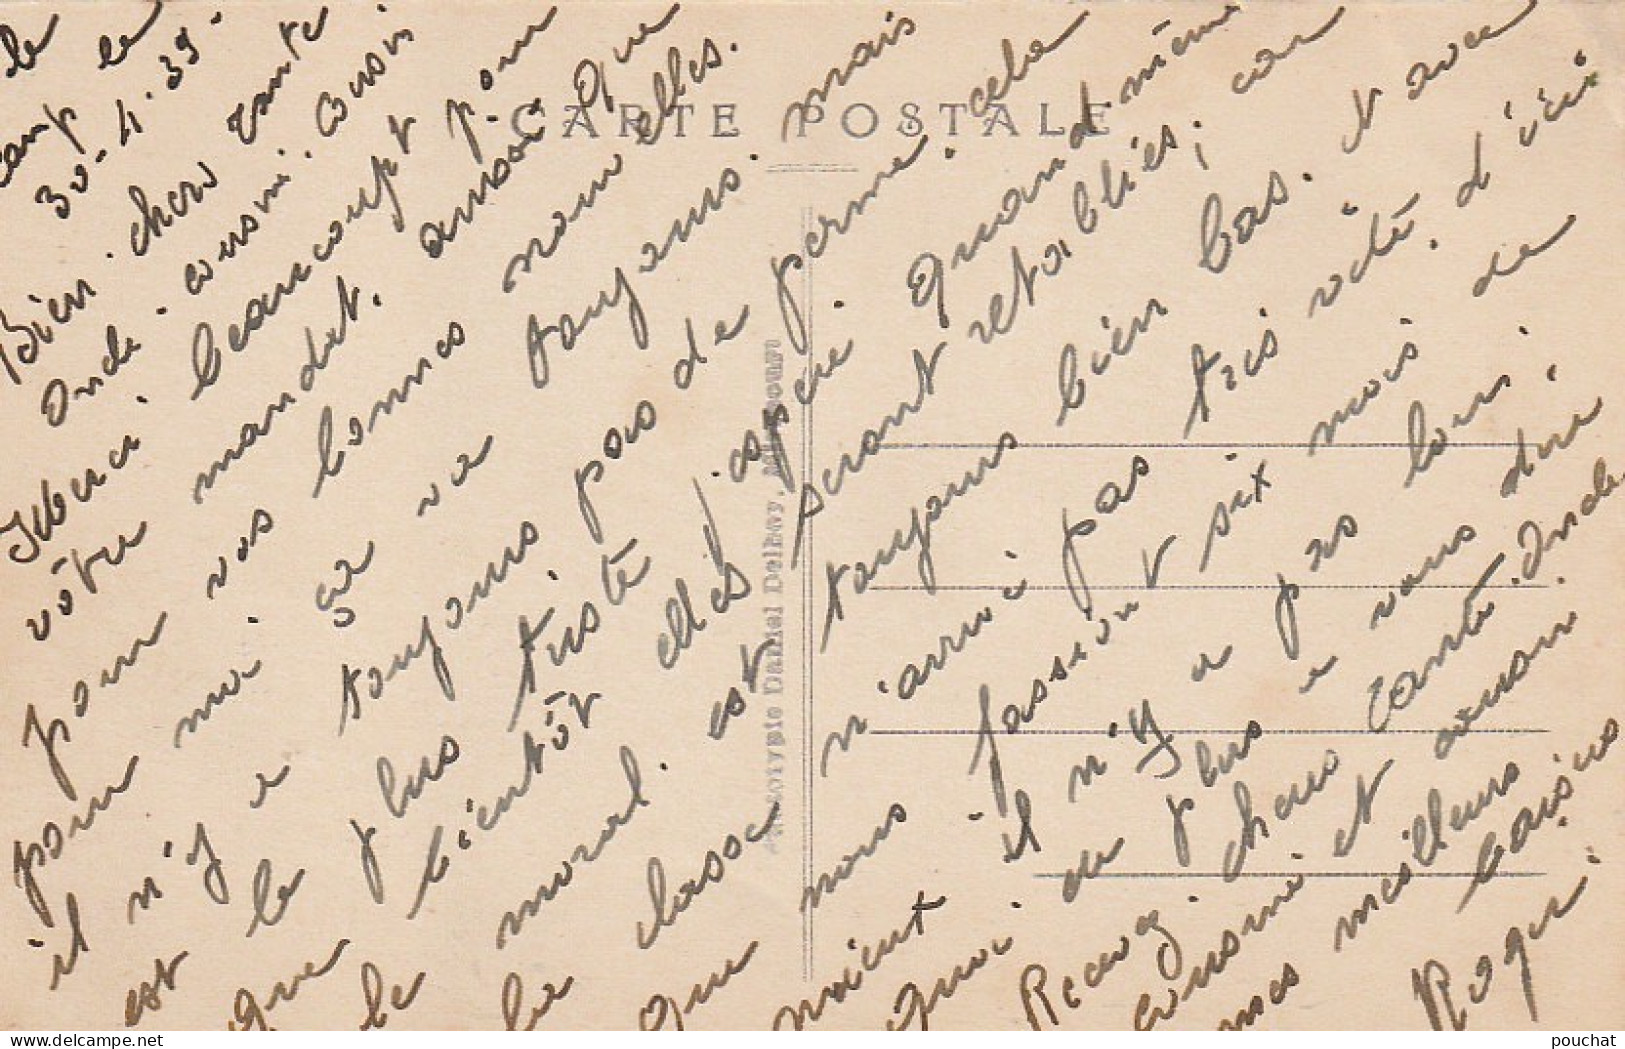 CARTE POSTALE
le
camp le
30-4-39.
Bien chers Tante
Oncle. cousine. cousin
Merci beaucoup pour
vôtre mandat. aussi que
pour vos bonnes nouvelles.
pour moi. ça va toujours. mais
il n'y a toujours pas de perme. cela
est le plus triste j'espère quand même
que bientôt elles seront retablies; car
le moral est toujours bien bas. et avec
la classe n'arrive pas très vite. d'ici
que nous fassions six mois de
mieux il n'y a pas loin.
quoi de plus a vous dire.
Recevez. chers Tante. Oncle.
cousine et cousin
mes meilleurs baisers
Roger.
Photocypie Daniel Delboy, Mirecourt
pouchat